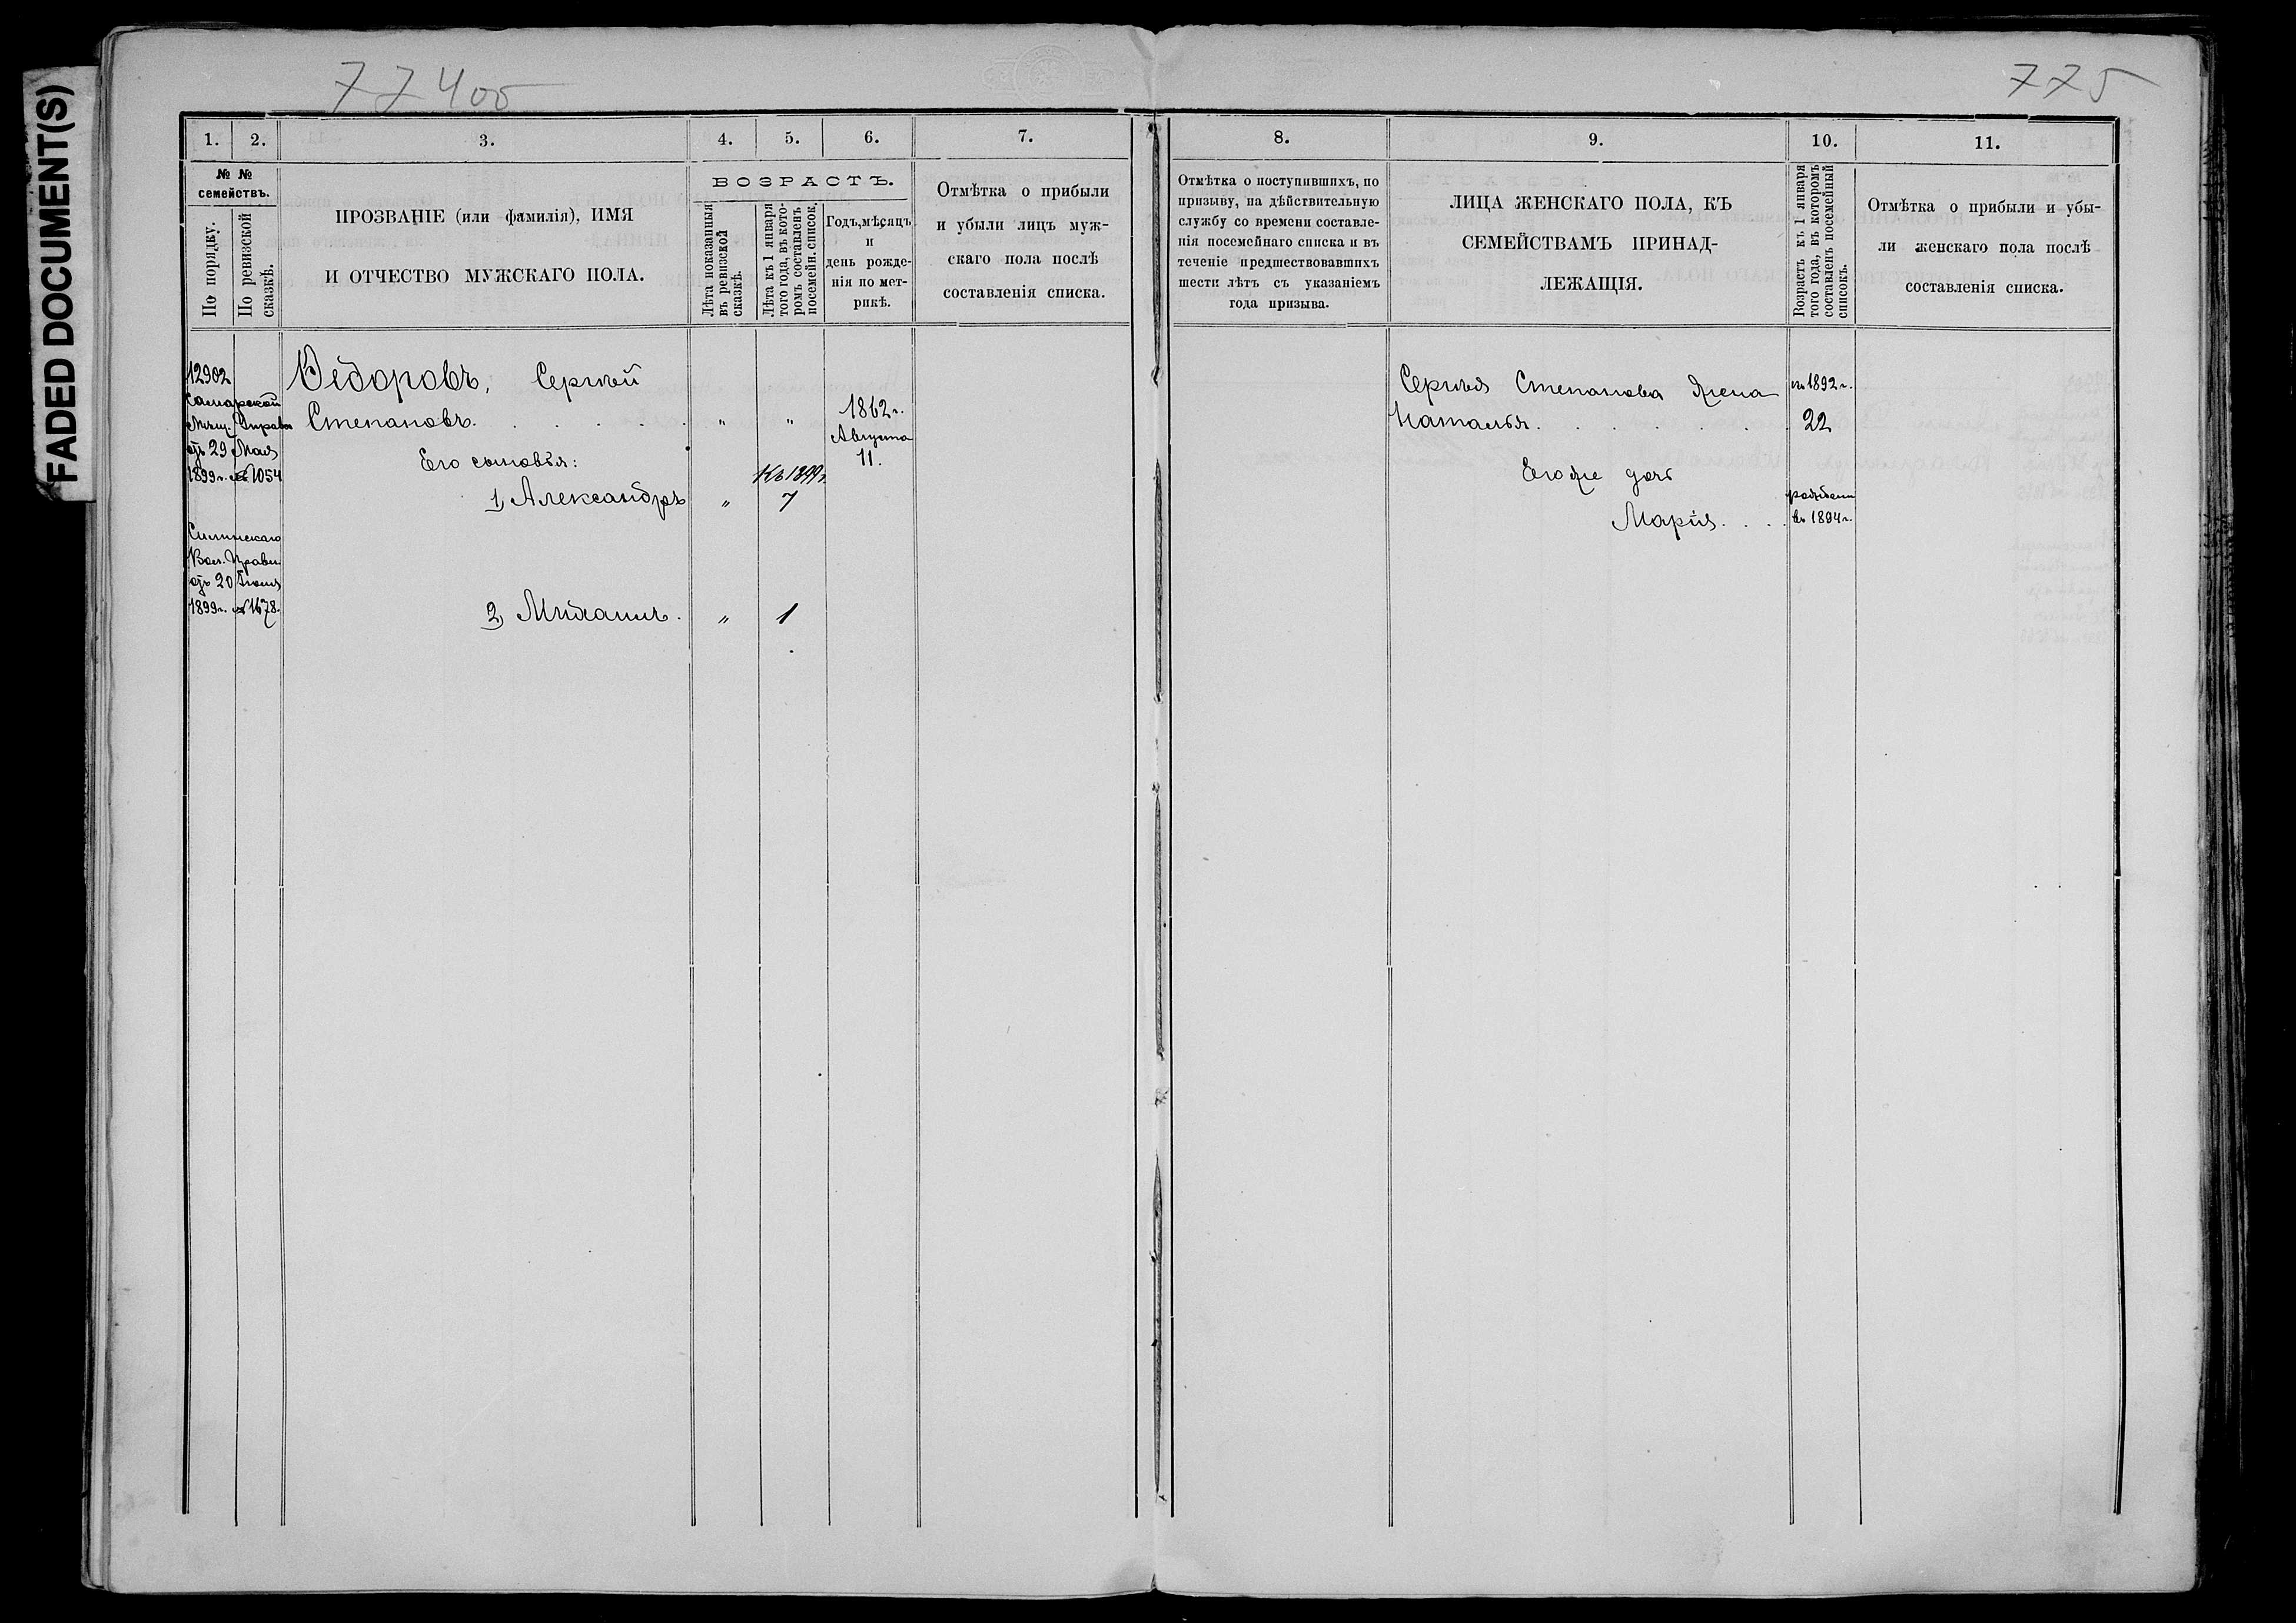 FADED DOCUMENT(S)
774об
775
1. 2. 3. 4. 5. 6. 7.
№ №
семействъ.
По порядку.
По ревизской
сказкѣ.
ПРОЗВАНІЕ (или фамилія), ИМЯ
И ОТЧЕСТВО МУЖСКАГО ПОЛА.
ВОЗРАСТЪ.
Лѣта показанныя
въ ревизской
сказкѣ.
Лѣта къ 1 января
того года, въ кото-
ромъ составленъ
посемейн. список.
Годъ, мѣсяцъ
и
день рожде-
нія по мет-
рикѣ.
Отмѣтка о прибыли
и убыли лицъ муж-
скаго пола послѣ
составленія списка.
12902
Самарской
Мѣщ. Управы
отъ 29 Мая
1899 г. № 1054
Ѳедоровъ, Сергѣй
Степановъ. . . . . . " " 1862 г.
Августа
11.
Его сыновья:
Къ 1899 г.
1) Александръ " 7
Вол. Правл.
отъ 20 Іюня
1899 г. № 1678.
2) Михаилъ. " 1
8. 9. 10. 11.
Отмѣтка о поступившихъ, по
призыву, на дѣйствительную
службу со времени составле-
нія посемейнаго списка и въ
теченіе предшествовавшихъ
шести лѣтъ съ указаніемъ
года призыва.
ЛИЦА ЖЕНСКАГО ПОЛА, КЪ
СЕМЕЙСТВАМЪ ПРИНАД-
ЛЕЖАЩІЯ.
Возрастъ къ 1 января
того года, въ которомъ
составленъ посемейный
списокъ.
Отмѣтка о прибыли и убы-
ли женскаго пола послѣ
составленія списка.
Сергѣя Степанова жена 1892 г.
Наталья. . . . . . 22
Его же дочь
Марія. . . . въ 1894 г.